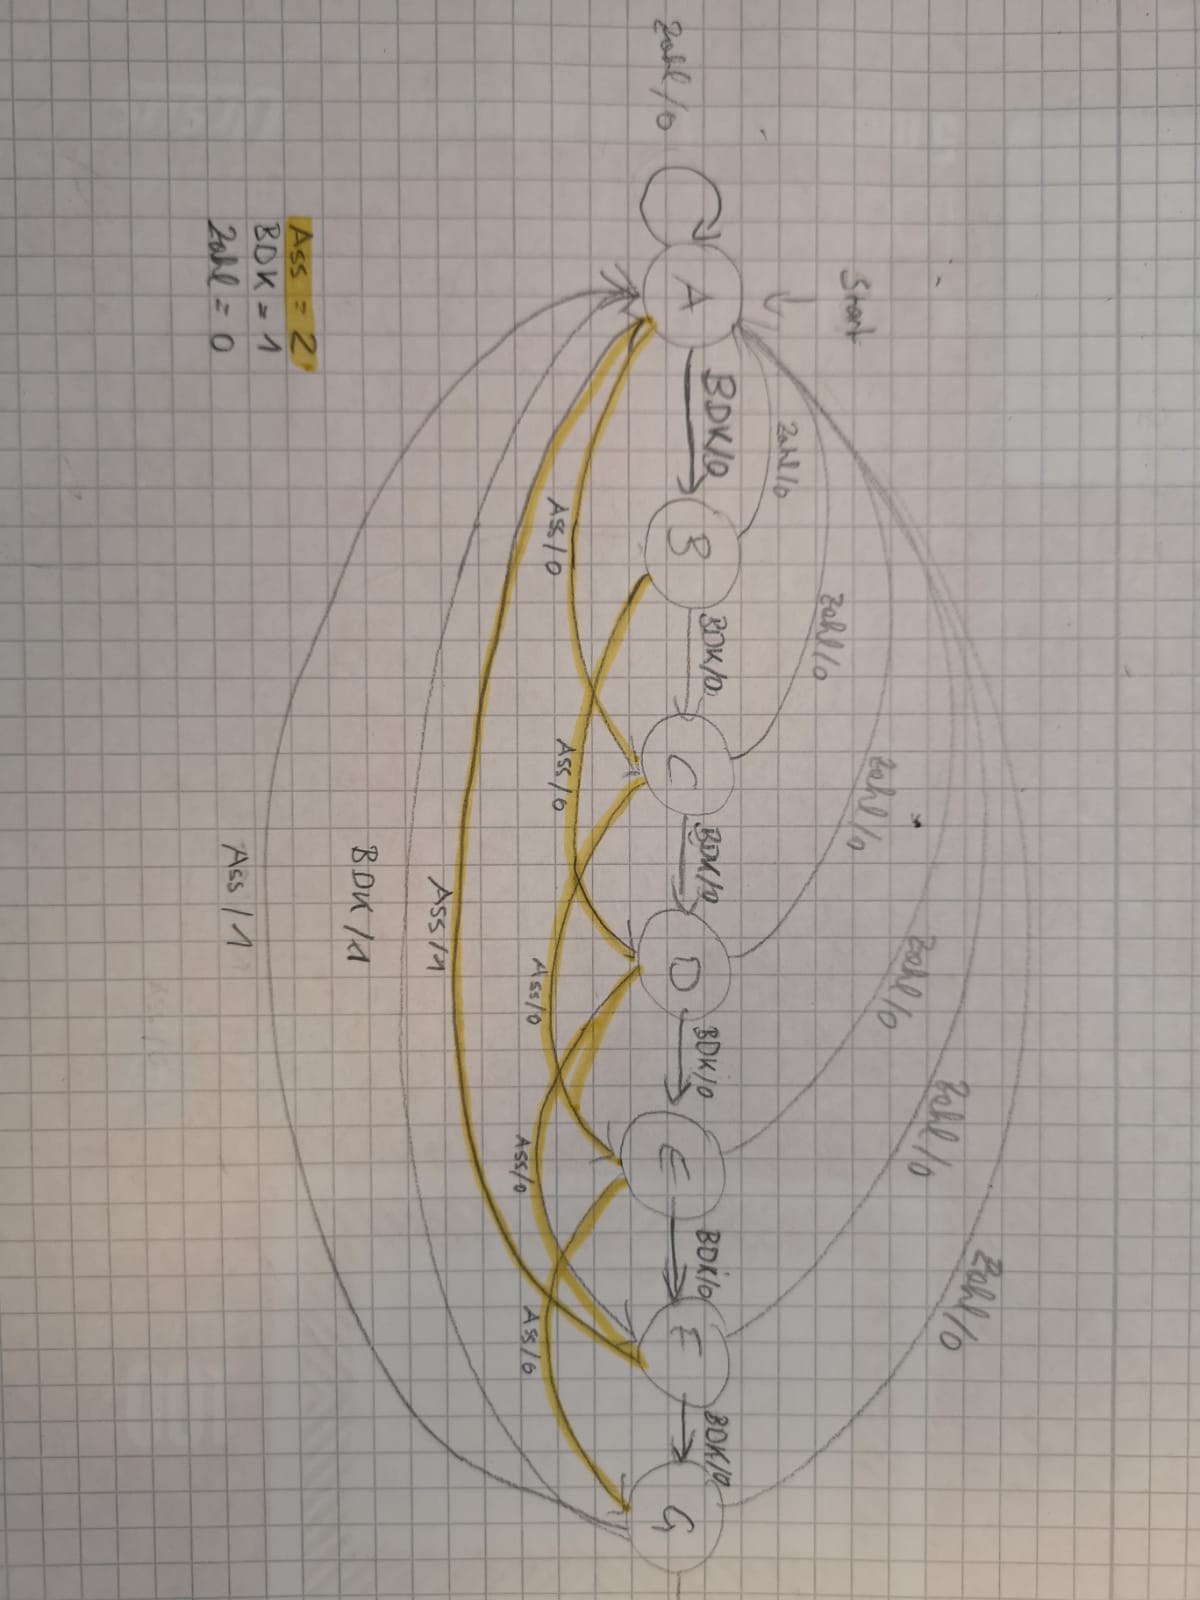 Zahl/0
Zahl/0
Zahl/0
Zahl/0
Start
Zahl/0
Zahl/0
Zahl/0
A
BDK/0
B
BDK/0
C
BDK/0
D
BDK/0
E
BDK/0
F
BDK/0
G
Ass/0
Ass/0
Ass/0
Ass/0
Ass/0
Ass/1
BDK/1
Ass = 2
BDK = 1
Zahl = 0
Ass/1